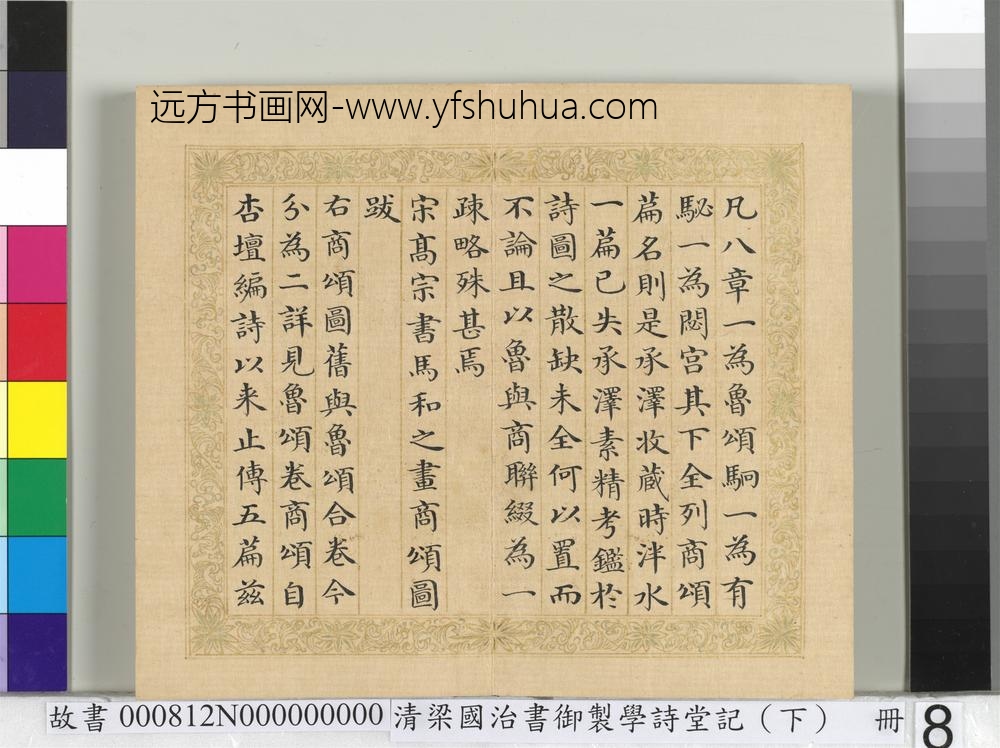 远方书画网-www.yfshuhua.com
凡八章一為魯頌駉一為有
駜一為閟宮其下全列商頌
篇名則是承澤收蔵時泮水
一篇已失承澤素精考鑑於
詩圖之散缺未全何以置而
不論且以魯與商聨綴為一
疎略殊甚焉
宋髙宗書馬和之畫商頌圖
跋
右商頌圖舊與魯頌合卷今
分為二詳見魯頌卷商頌自
杏壇編詩以来止傳五篇茲
故書 000812N000000000 清梁國治書御製學詩堂記（下） 冊 8